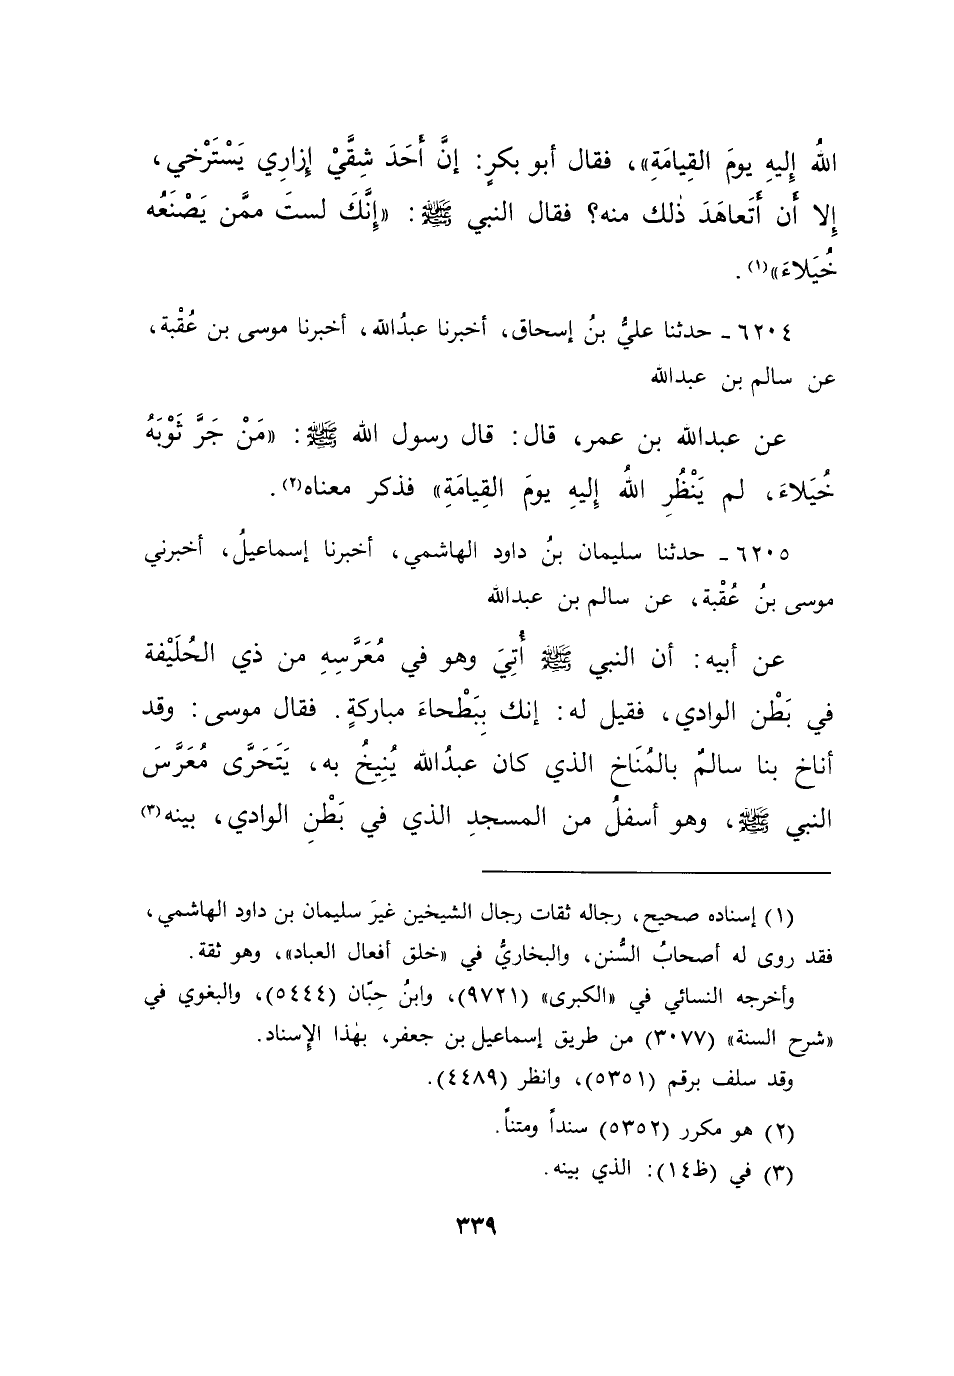 اللهُ إليهِ يومَ القِيامَةِ»، فقال أبو بكرٍ: إنَّ أَحَدَ شِقَّيْ إِزارِي يَسْتَرْخي،
إلا أَن أَتَعاهَدَ ذٰلك منه؟ فقال النبي ﷺ: «إِنَّكَ لستَ ممَّن يَصْنَعُه
خُيَلاءَ»(١).
٦٢٠٤ ـ حدثنا عليُّ بنُ إسحاق، أخبرنا عبدُالله، أخبرنا موسى بن عُقْبة،
عن سالم بن عبدالله
عن عبدالله بن عمر، قال: قال رسول الله ﷺ: «مَنْ جَرَّ ثَوْبَهُ
خُيَلاءَ، لم يَنْظُرِ اللهُ إليهِ يومَ القِيامَةِ» فذكر معناه(٢).
٦٢٠٥ ـ حدثنا سليمان بنُ داود الهاشمي، أخبرنا إسماعيلُ، أخبرني
موسى بنُ عُقْبة، عن سالم بن عبدالله
عن أبيه: أن النبي ﷺ أُتِيَ وهو في مُعَرَّسِهِ من ذي الحُلَيْفة
في بَطْنِ الوادي، فقيل له: إنك بِبَطْحاءَ مباركةٍ. فقال موسى: وقد
أناخ بنا سالمٌ بالمُنَاخِ الذي كان عبدُالله يُنِيخُ به، يَتَحَرَّى مُعَرَّسَ
النبي ﷺ، وهو أسفلُ من المسجدِ الذي في بَطْنِ الوادي، بينه(٣)
(١) إسناده صحيح، رجاله ثقات رجال الشيخين غيرَ سليمان بن داود الهاشمي،
فقد روى له أصحابُ السُّنن، والبخاريُّ في «خلق أفعال العباد»، وهو ثقة.
وأخرجه النسائي في «الكبرى» (٩٧٢١)، وابنُ حِبّان (٥٤٤٤)، والبغوي في
«شرح السنة» (٣٠٧٧) من طريق إسماعيل بن جعفر، بهٰذا الإسناد.
وقد سلف برقم (٥٣٥١)، وانظر (٤٤٨٩).
(٢) هو مكرر (٥٣٥٢) سنداً ومتناً.
(٣) في (ظ١٤): الذي بينه.
٣٣٩